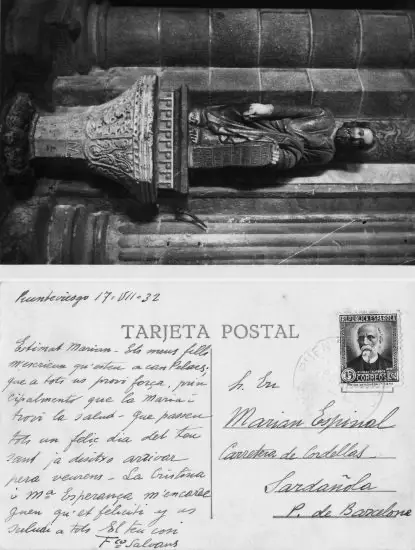 Puenteviesgo 17-VII-32
TARJETA POSTAL
REPUBLICA ESPAÑOLA
CORREOS
Estimat Marian - Els meus fills
m'escriuen qu'esteu a can Palacs,
que a tots us provi força, prin
cipalment que la Maria i
trovi la salud - que passeu
tots un feliç dia del teu
sant ja desitjo arrivar
pera veurens - La Cristina
i Mª Esperança m'encarre
guen qu'et feliciti y us
saludi a tots El teu cosi
Fco Salvans
Sr. En
Marian Espinal
Carretera de Cordelles
Sardañola
P. de Barcelona